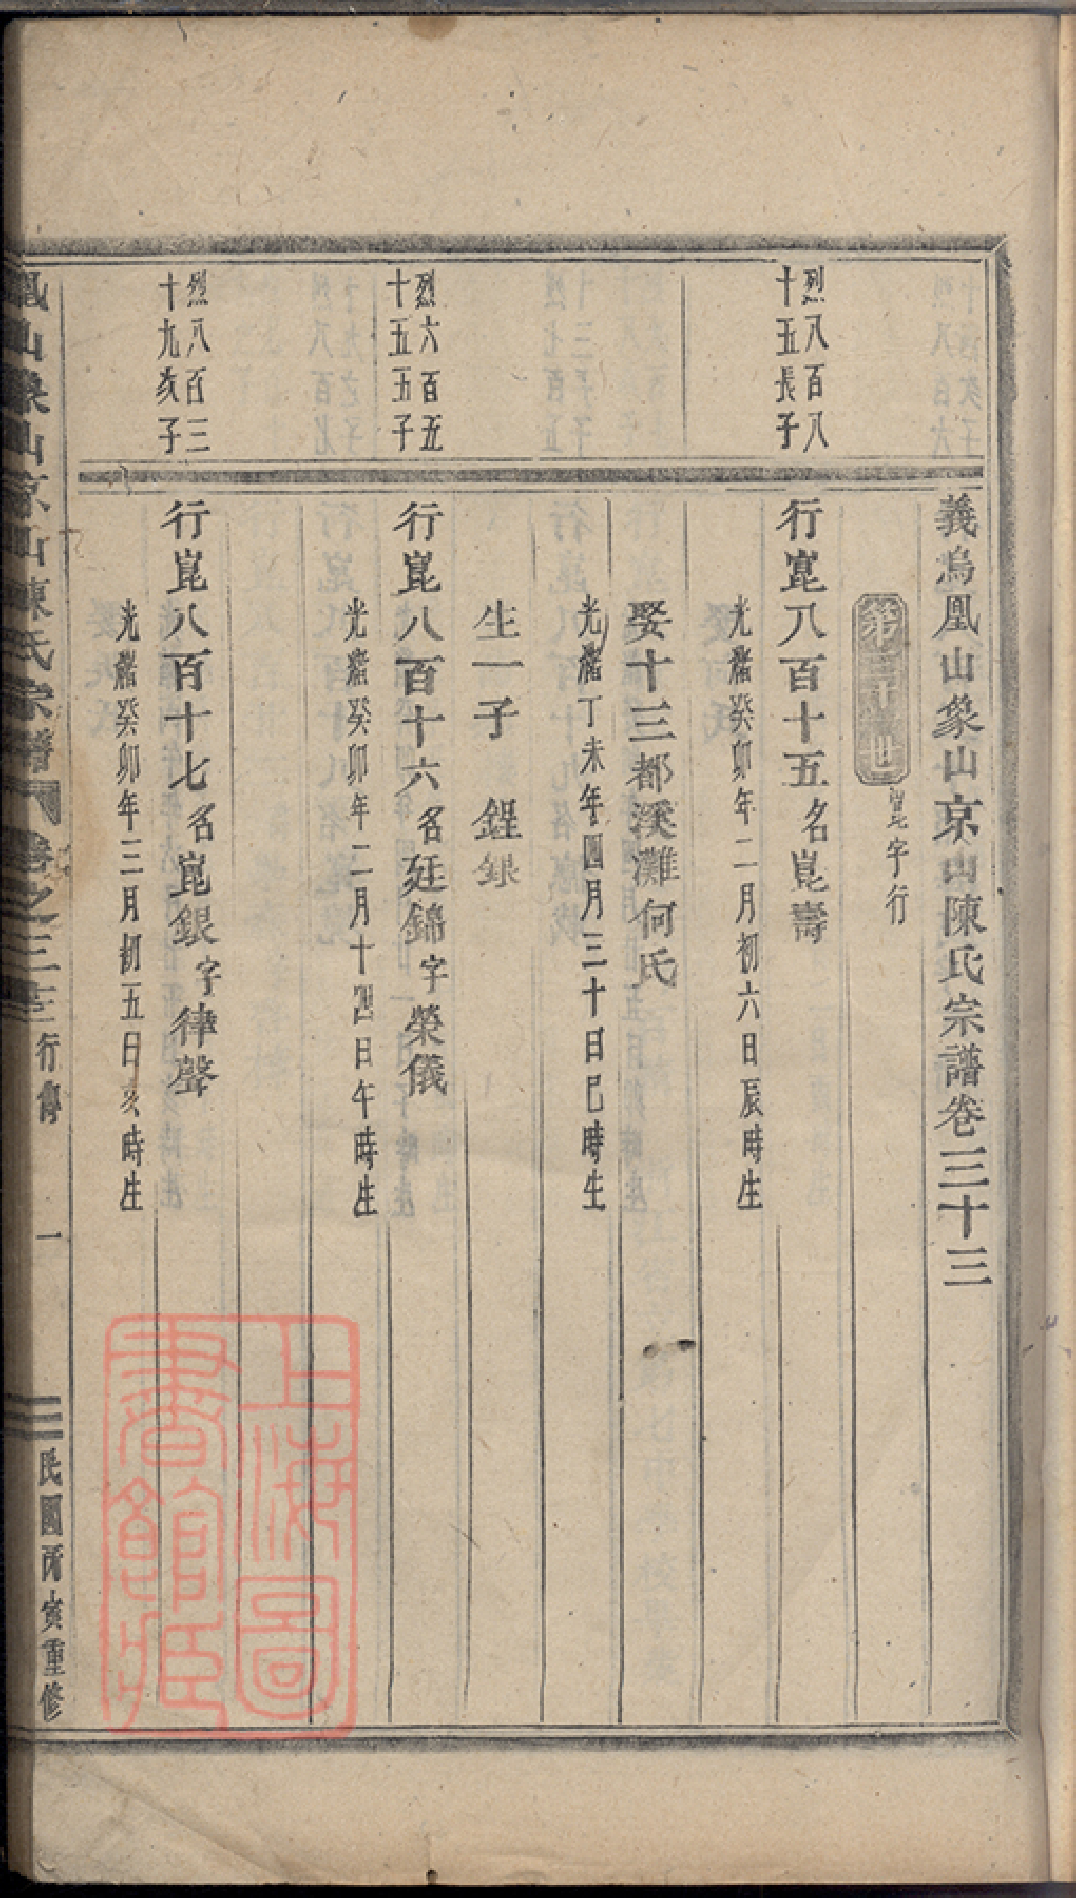 義烏鳳山象山京山陳氏宗譜卷三十三
世
崑字行
烈八百八
十五長子
行崑八百十五名崑壽
光緒癸卯年二月初六日辰時生
娶十三都溪灘何氏
光緒丁未年四月三十日巳時生
生一子 鋥銀
烈六百五
十五五子
行崑八百十六名廷錦字榮儀
光緒癸卯年二月十四日午時生
烈八百三
十九次子
行崑八百十七名崑銀字律聲
光緒癸卯年三月初五日亥時生
鳳山象山京山陳氏宗譜 卷之三十三 行傳 一 民國丙寅重修
上海圖
書館藏